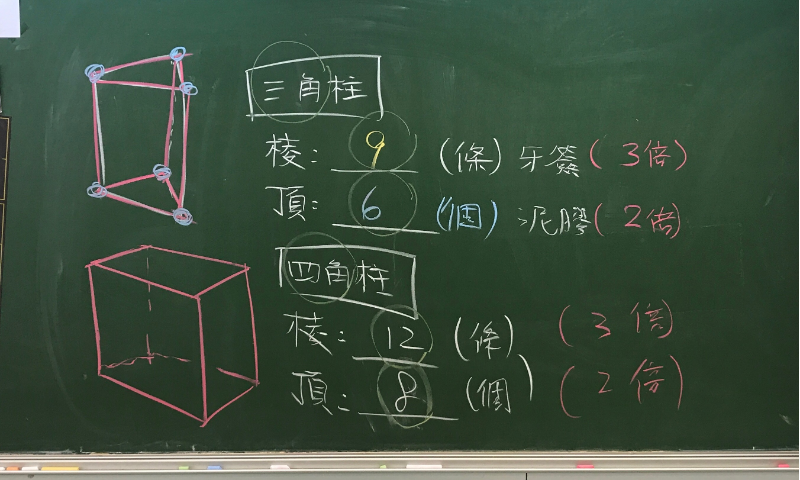 三角柱
棱: 9 (條) 牙籤 (3倍)
頂: 6 (個) 泥膠 (2倍)
四角柱
棱: 12 (條) (3倍)
頂: 8 (個) (2倍)